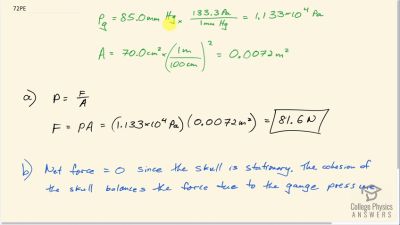 72PE
Pg = 85.0 mm Hg × 133.3 Pa / 1 mm Hg = 1.133×10⁴ Pa
A = 70.0 cm² × (1 m / 100 cm)² = 0.0072 m²
a) P = F / A
F = PA = (1.133×10⁴ Pa)(0.0072 m²) = 81.6 N
b) Net force = 0 since the skull is stationary. The cohesion of
the skull balances the force due to the gauge pressure
College Physics
ANSWERS